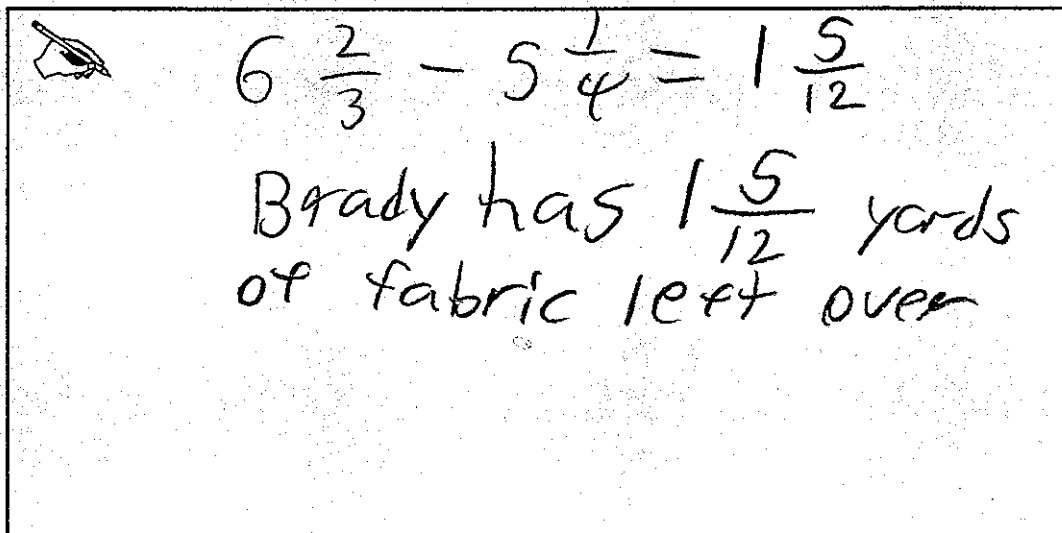 6 2/3 - 5 1/4 = 1 5/12
Brady has 1 5/12 yards
of fabric left over